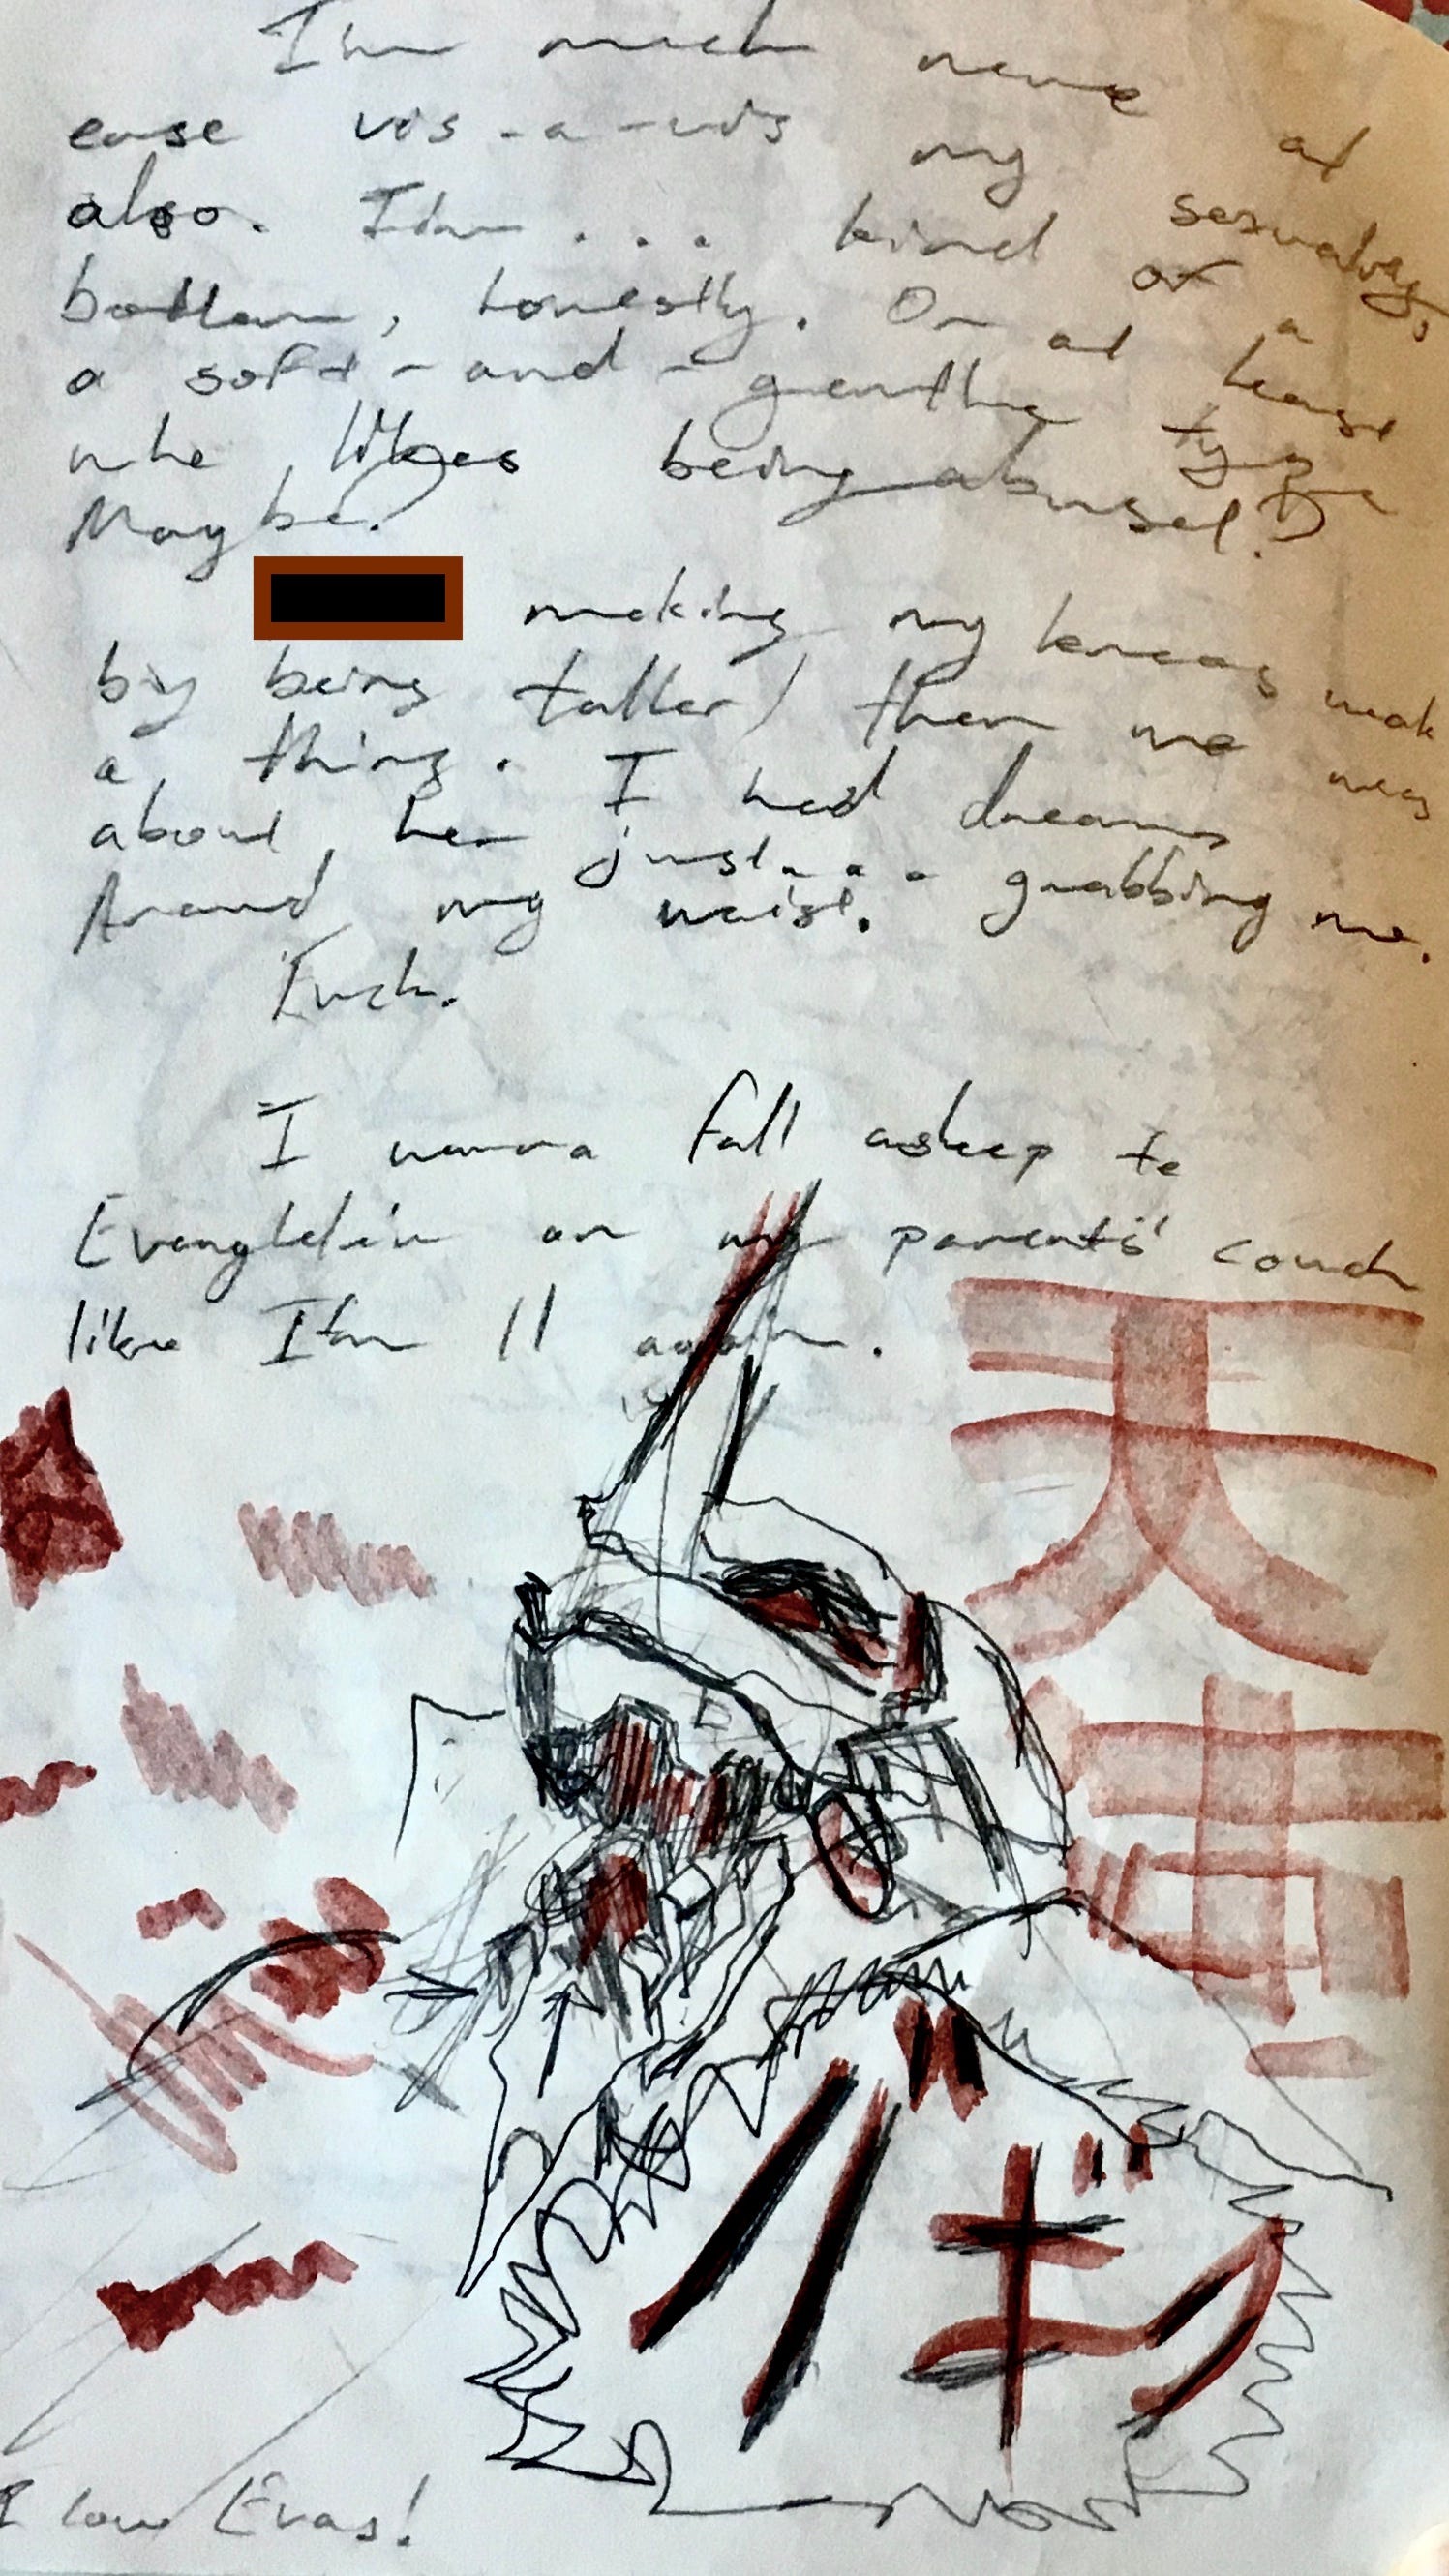 I'm much more at
ease vis-a-vis my sexuality,
also. I'm... kind of a
bottom, honestly. Or at least
a soft-and-gentle type
who likes being abused?
Maybe?
making my knees weak
by being taller than me was
a thing. I had dreams
about her just... grabbing me.
Around my waist.
Fuck.
I wanna fall asleep to
on my parents' couch
like I'm 11 again.
天
使
バギク
I love Evas!